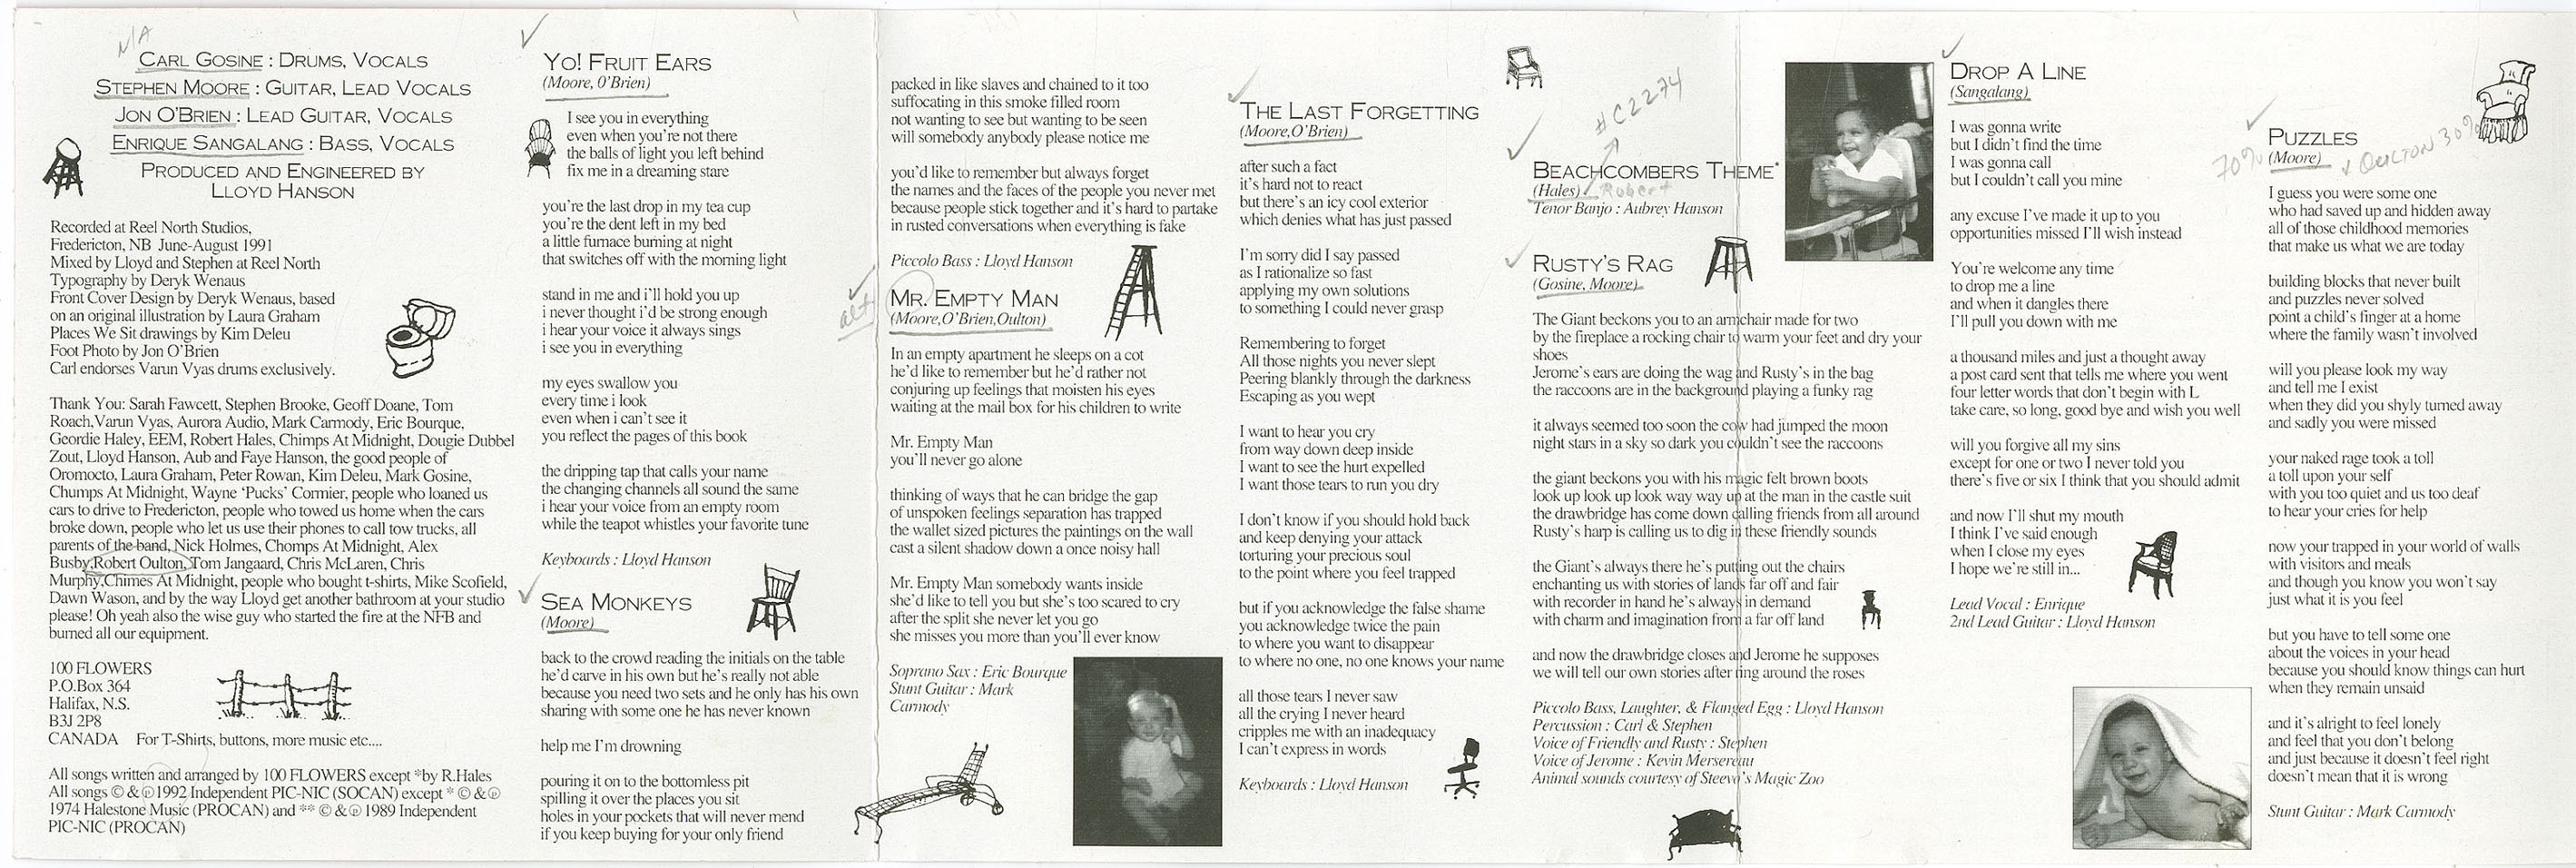 N/A
CARL GOSINE : DRUMS, VOCALS
STEPHEN MOORE : GUITAR, LEAD VOCALS
JON O'BRIEN : LEAD GUITAR, VOCALS
ENRIQUE SANGALANG : BASS, VOCALS
PRODUCED AND ENGINEERED BY
LLOYD HANSON
Recorded at Reel North Studios,
Fredericton, NB June-August 1991
Mixed by Lloyd and Stephen at Reel North
Typography by Deryk Wenaus
Front Cover Design by Deryk Wenaus, based
on an original illustration by Laura Graham
Places We Sit drawings by Kim Deleu
Foot Photo by Jon O'Brien
Carl endorses Varun Vyas drums exclusively.
Thank You: Sarah Fawcett, Stephen Brooke, Geoff Doane, Tom
Roach,Varun Vyas, Aurora Audio, Mark Carmody, Eric Bourque,
Geordie Haley, EEM, Robert Hales, Chimps At Midnight, Dougie Dubbel
Zout, Lloyd Hanson, Aub and Faye Hanson, the good people of
Oromocto, Laura Graham, Peter Rowan, Kim Deleu, Mark Gosine,
Chumps At Midnight, Wayne 'Pucks' Cormier, people who loaned us
cars to drive to Fredericton, people who towed us home when the cars
broke down, people who let us use their phones to call tow trucks, all
parents of the band, Nick Holmes, Chomps At Midnight, Alex
Busby,Robert Oulton, Tom Jangaard, Chris McLaren, Chris
Murphy,Chimes At Midnight, people who bought t-shirts, Mike Scofield,
Dawn Wason, and by the way Lloyd get another bathroom at your studio
please! Oh yeah also the wise guy who started the fire at the NFB and
burned all our equipment.
100 FLOWERS
P.O.Box 364
Halifax, N.S.
B3J 2P8
CANADA For T-Shirts, buttons, more music etc....
All songs written and arranged by 100 FLOWERS except *by R.Hales
All songs © & ℗ 1992 Independent PIC-NIC (SOCAN) except * © & ℗
1974 Halestone Music (PROCAN) and ** © & ℗ 1989 Independent
PIC-NIC (PROCAN)
YO! FRUIT EARS
(Moore, O'Brien)
I see you in everything
even when you're not there
the balls of light you left behind
fix me in a dreaming stare
you're the last drop in my tea cup
you're the dent left in my bed
a little furnace burning at night
that switches off with the morning light
stand in me and i'll hold you up
i never thought i'd be strong enough
i hear your voice it always sings
i see you in everything
my eyes swallow you
every time i look
even when i can't see it
you reflect the pages of this book
the dripping tap that calls your name
the changing channels all sound the same
i hear your voice from an empty room
while the teapot whistles your favorite tune
Keyboards : Lloyd Hanson
SEA MONKEYS
(Moore)
back to the crowd reading the initials on the table
he'd carve in his own but he's really not able
because you need two sets and he only has his own
sharing with some one he has never known
help me I'm drowning
pouring it on to the bottomless pit
spilling it over the places you sit
holes in your pockets that will never mend
if you keep buying for your only friend
packed in like slaves and chained to it too
suffocating in this smoke filled room
not wanting to see but wanting to be seen
will somebody anybody please notice me
you'd like to remember but always forget
the names and the faces of the people you never met
because people stick together and it's hard to partake
in rusted conversations when everything is fake
Piccolo Bass : Lloyd Hanson
alt
MR. EMPTY MAN
(Moore,O'Brien,Oulton)
In an empty apartment he sleeps on a cot
he'd like to remember but he'd rather not
conjuring up feelings that moisten his eyes
waiting at the mail box for his children to write
Mr. Empty Man
you'll never go alone
thinking of ways that he can bridge the gap
of unspoken feelings separation has trapped
the wallet sized pictures the paintings on the wall
cast a silent shadow down a once noisy hall
Mr. Empty Man somebody wants inside
she'd like to tell you but she's too scared to cry
after the split she never let you go
she misses you more than you'll ever know
Soprano Sax : Eric Bourque
Stunt Guitar : Mark
Carmody
THE LAST FORGETTING
(Moore,O'Brien)
after such a fact
it's hard not to react
but there's an icy cool exterior
which denies what has just passed
I'm sorry did I say passed
as I rationalize so fast
applying my own solutions
to something I could never grasp
Remembering to forget
All those nights you never slept
Peering blankly through the darkness
Escaping as you wept
I want to hear you cry
from way down deep inside
I want to see the hurt expelled
I want those tears to run you dry
I don't know if you should hold back
and keep denying your attack
torturing your precious soul
to the point where you feel trapped
but if you acknowledge the false shame
you acknowledge twice the pain
to where you want to disappear
to where no one, no one knows your name
all those tears I never saw
all the crying I never heard
cripples me with an inadequacy
I can't express in words
Keyboards : Lloyd Hanson
#C2274
BEACHCOMBERS THEME*
(Hales) Robert
Tenor Banjo : Aubrey Hanson
RUSTY'S RAG
(Gosine, Moore)
The Giant beckons you to an armchair made for two
by the fireplace a rocking chair to warm your feet and dry your
shoes
Jerome's ears are doing the wag and Rusty's in the bag
the raccoons are in the background playing a funky rag
it always seemed too soon the cow had jumped the moon
night stars in a sky so dark you couldn't see the raccoons
the giant beckons you with his magic felt brown boots
look up look up look way way up at the man in the castle suit
the drawbridge has come down calling friends from all around
Rusty's harp is calling us to dig in these friendly sounds
the Giant's always there he's putting out the chairs
enchanting us with stories of lands far off and fair
with recorder in hand he's always in demand
with charm and imagination from a far off land
and now the drawbridge closes and Jerome he supposes
we will tell our own stories after ring around the roses
Piccolo Bass, Laughter, & Flanged Egg : Lloyd Hanson
Percussion : Carl & Stephen
Voice of Friendly and Rusty : Stephen
Voice of Jerome : Kevin Mersereau
Animal sounds courtesy of Steevo's Magic Zoo
DROP A LINE
(Sangalang)
I was gonna write
but I didn't find the time
I was gonna call
but I couldn't call you mine
any excuse I've made it up to you
opportunities missed I'll wish instead
You're welcome any time
to drop me a line
and when it dangles there
I'll pull you down with me
a thousand miles and just a thought away
a post card sent that tells me where you went
four letter words that don't begin with L
take care, so long, good bye and wish you well
will you forgive all my sins
except for one or two I never told you
there's five or six I think that you should admit
and now I'll shut my mouth
I think I've said enough
when I close my eyes
I hope we're still in...
Lead Vocal : Enrique
2nd Lead Guitar : Lloyd Hanson
PUZZLES
70% (Moore) + OULTON 30%
I guess you were some one
who had saved up and hidden away
all of those childhood memories
that make us what we are today
building blocks that never built
and puzzles never solved
point a child's finger at a home
where the family wasn't involved
will you please look my way
and tell me I exist
when they did you shyly turned away
and sadly you were missed
your naked rage took a toll
a toll upon your self
with you too quiet and us too deaf
to hear your cries for help
now your trapped in your world of walls
with visitors and meals
and though you know you won't say
just what it is you feel
but you have to tell some one
about the voices in your head
because you should know things can hurt
when they remain unsaid
and it's alright to feel lonely
and feel that you don't belong
and just because it doesn't feel right
doesn't mean that it is wrong
Stunt Guitar : Mark Carmody